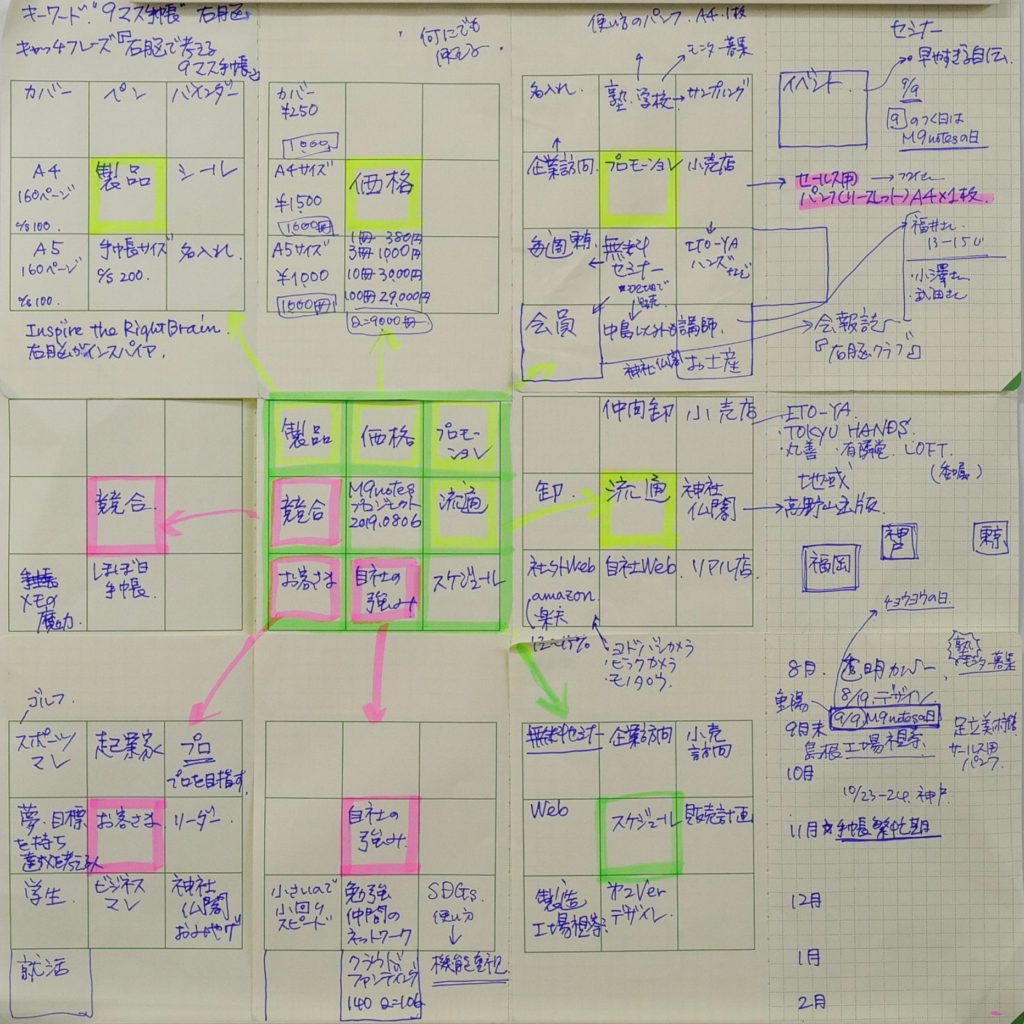 キーワード"9マス手帳" 右脳
キャッチフレーズ『右脳で考える
9マス手帳』
カバー
ペン
バインダー
A4
160ページ
製品
シール
A5
160ページ
手帳サイズ
200.
名入れ
Inspire the Right Brain.
右脳がインスパイア.
何にでも
使える
カバー
¥250
A4サイズ
¥1500
価格
A5サイズ
¥1000
1冊 380円
3冊 1000円
10冊 3000円
100冊 29,000円
使い方のパンフ. A4.1枚
モニター募集
名入れ.
塾・学校→サンプリング
企業訪問
プロモーション
小売店
無料
セミナー
ITO-YA
ハンズ
など
会員
中島以外も講師
神社仏閣
お土産
セミナー
イベント
早やすぎる自伝.
9/9
9のつく日は
M9notesの日
セールス用
パンフ(リーフレット)A4×1枚.
福井さん
13-15
・小澤さん
・武田さん
会報誌
『右脳クラブ』
競合
メモの
魔力
ほぼ日
手帳.
製品
価格
プロモーション
競合
M9notes
プロジェクト
2019.0806
流通
お客さま
自社の
強み
スケジュール
仲間卸
小売店
・ITO-YA.
・TOKYU HANDS.
・丸善・有隣堂. LOFT.
卸.
流通
神社
仏閣
地域
高野山出版
社外Web
amazon
楽天
12~15%
自社Web.
リアル店
・ヨドバシカメラ
・ビックカメラ
・モノタロウ.
福岡
神戸
東京
チョウヨウの日.
ゴルフ
スポーツ
マン
起業家
プロ
プロを目指す.
夢・目標
を持ち
お客さま
リーダー.
学生.
ビジネス
マン
神社
仏閣
おみやげ
就活
自社の
強み.
小さいので
小回り
スピード
勉強
仲間の
ネットワーク
SDGs
使い方
機能を重視
クラウド
ファンディング
無料セミナー
企業訪問
小売
訪問
Web
スケジュール
販売計画
製造
工場視察.
デザイン.
8月.
透明カバー
8/19.デザイン
モニター募集
重陽
9/9.M9notesの日
9月末
島根工場視察.
足立美術館
セールス用
パンフ.
10月
10/23-24.神戸.
11月
手帳繁忙期
12月
1月
2月